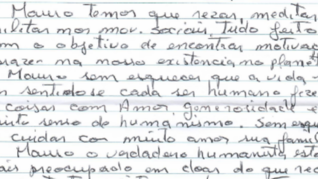 Mauro temos que rezar, meditar
militar nos mov. sociais, tudo feito
m o objetivo de encontrar motivaç
nazer na nossa existencia no planet
Mauro sem esquecer que a vida
m sentido se cada ser humano fizer
coisas com Amor, generosidade e
uito senso de humanismo. Sem esque
cuidar com muito amor sua famil
Mauro o verdadeiro humanista, esta
ais preocupado em doar do que rec